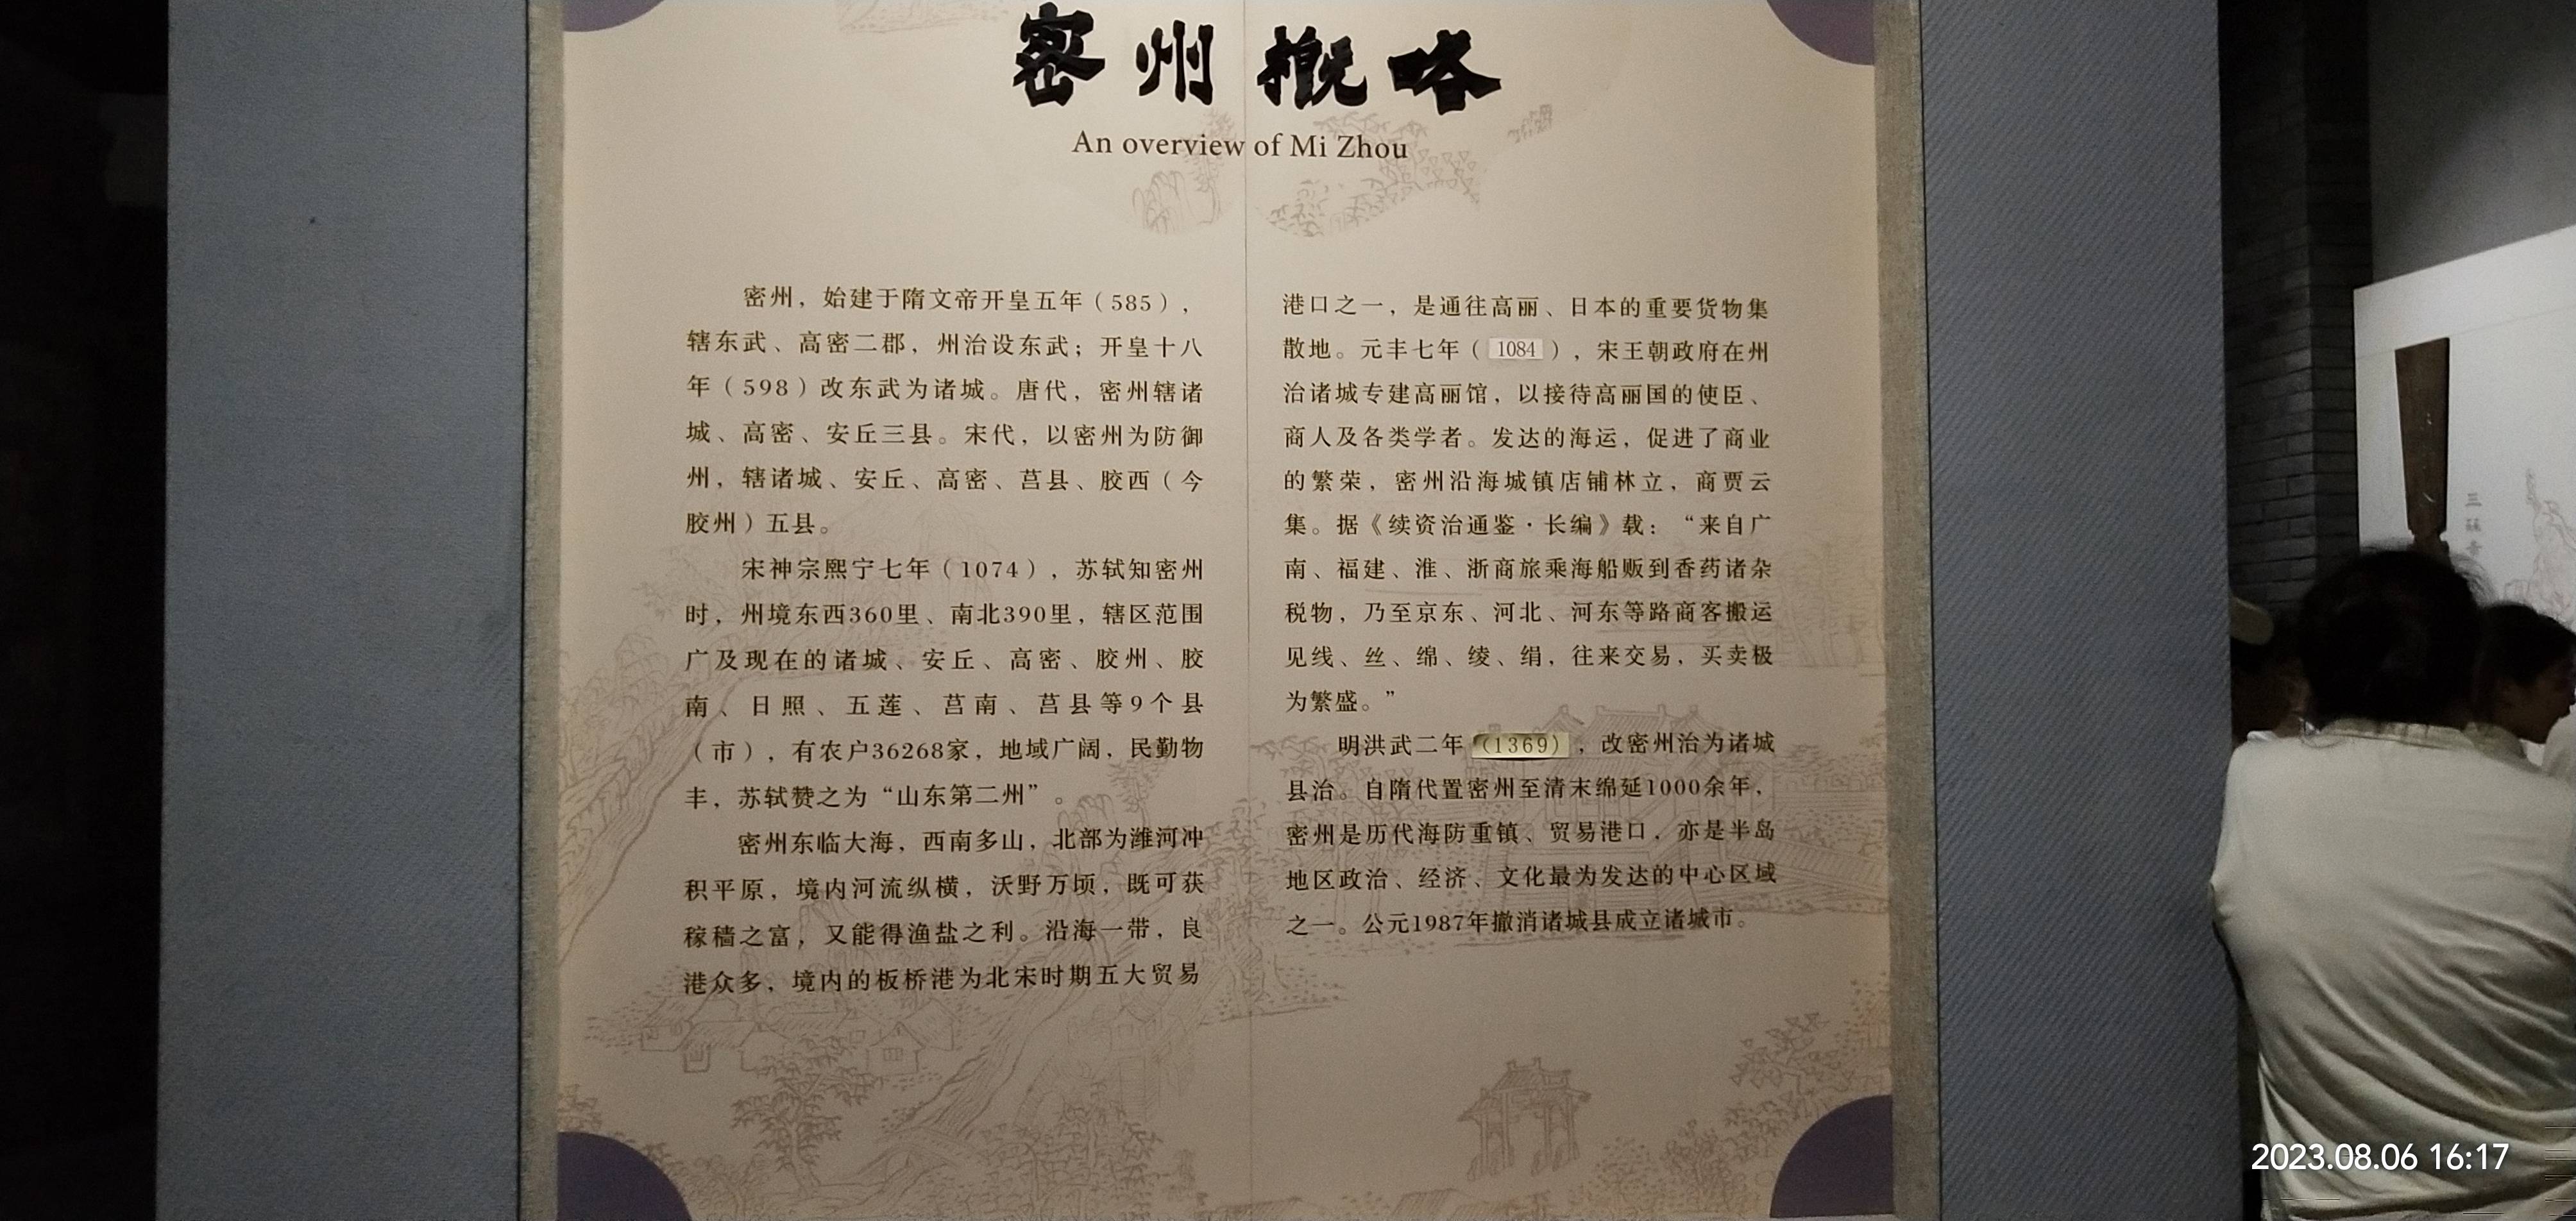 密州概略
An overview of Mi Zhou
密州，始建于隋文帝开皇五年（585），
辖东武、高密二郡，州治设东武；开皇十八
年（598）改东武为诸城。唐代，密州辖诸
城、高密、安丘三县。宋代，以密州为防御
州，辖诸城、安丘、高密、莒县、胶西（今
胶州）五县。
宋神宗熙宁七年（1074），苏轼知密州
时，州境东西360里、南北390里，辖区范围
广及现在的诸城、安丘、高密、胶州、胶
南、日照、五莲、莒南、莒县等9个县
（市），有农户36268家，地域广阔，民勤物
丰，苏轼赞之为“山东第二州”。
密州东临大海，西南多山，北部为潍河冲
积平原，境内河流纵横，沃野万顷，既可获
稼穑之富，又能得渔盐之利。沿海一带，良
港众多，境内的板桥港为北宋时期五大贸易
港口之一，是通往高丽、日本的重要货物集
散地。元丰七年（1084），宋王朝政府在州
治诸城专建高丽馆，以接待高丽国的使臣、
商人及各类学者。发达的海运，促进了商业
的繁荣，密州沿海城镇店铺林立，商贾云
集。据《续资治通鉴·长编》载：“来自广
南、福建、淮、浙商旅乘海船贩到香药诸杂
税物，乃至京东、河北、河东等路商客搬运
见线、丝、绵、绫、绢，往来交易，买卖极
为繁盛。”
明洪武二年（1369），改密州治为诸城
县治。自隋代置密州至清末绵延1000余年，
密州是历代海防重镇、贸易港口，亦是半岛
地区政治、经济、文化最为发达的中心区域
之一。公元1987年撤消诸城县成立诸城市。
2023.08.06 16:17